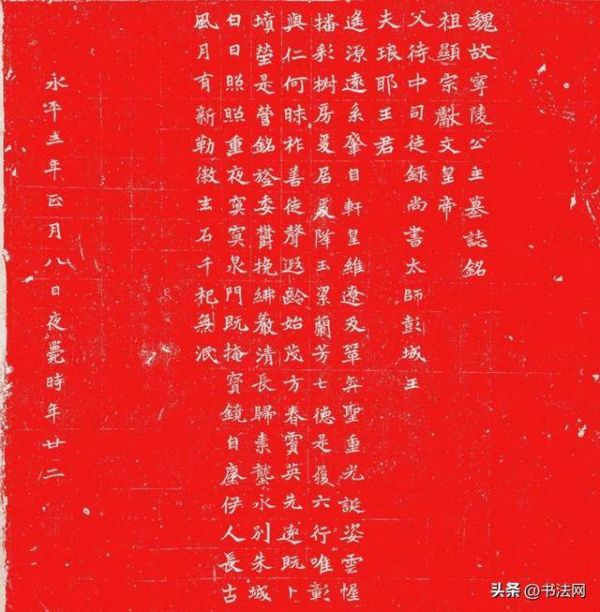 魏故寧陵公主墓誌銘
祖顯宗獻文皇帝
父侍中司徒錄尚書太師彭城王
夫琅耶王君
遙源遠系肇自軒皇維遼及鞏弈聖重光誕姿雲幄
播彩樹房爰居爰降玉潔蘭芳七德是履六行唯彰
與仁何昧祚善徒聲遐齡始茂方春賈英先遠既卜
墳塋是營銘旌委鬱挽紼嚴清長歸素壟永別朱城
白日照照重夜冥冥泉門既掩寶鏡自塵伊人長古
風月有新勒徽玄石千祀無泯
永平三年正月八日夜薨時年廿二
头条 @书法网